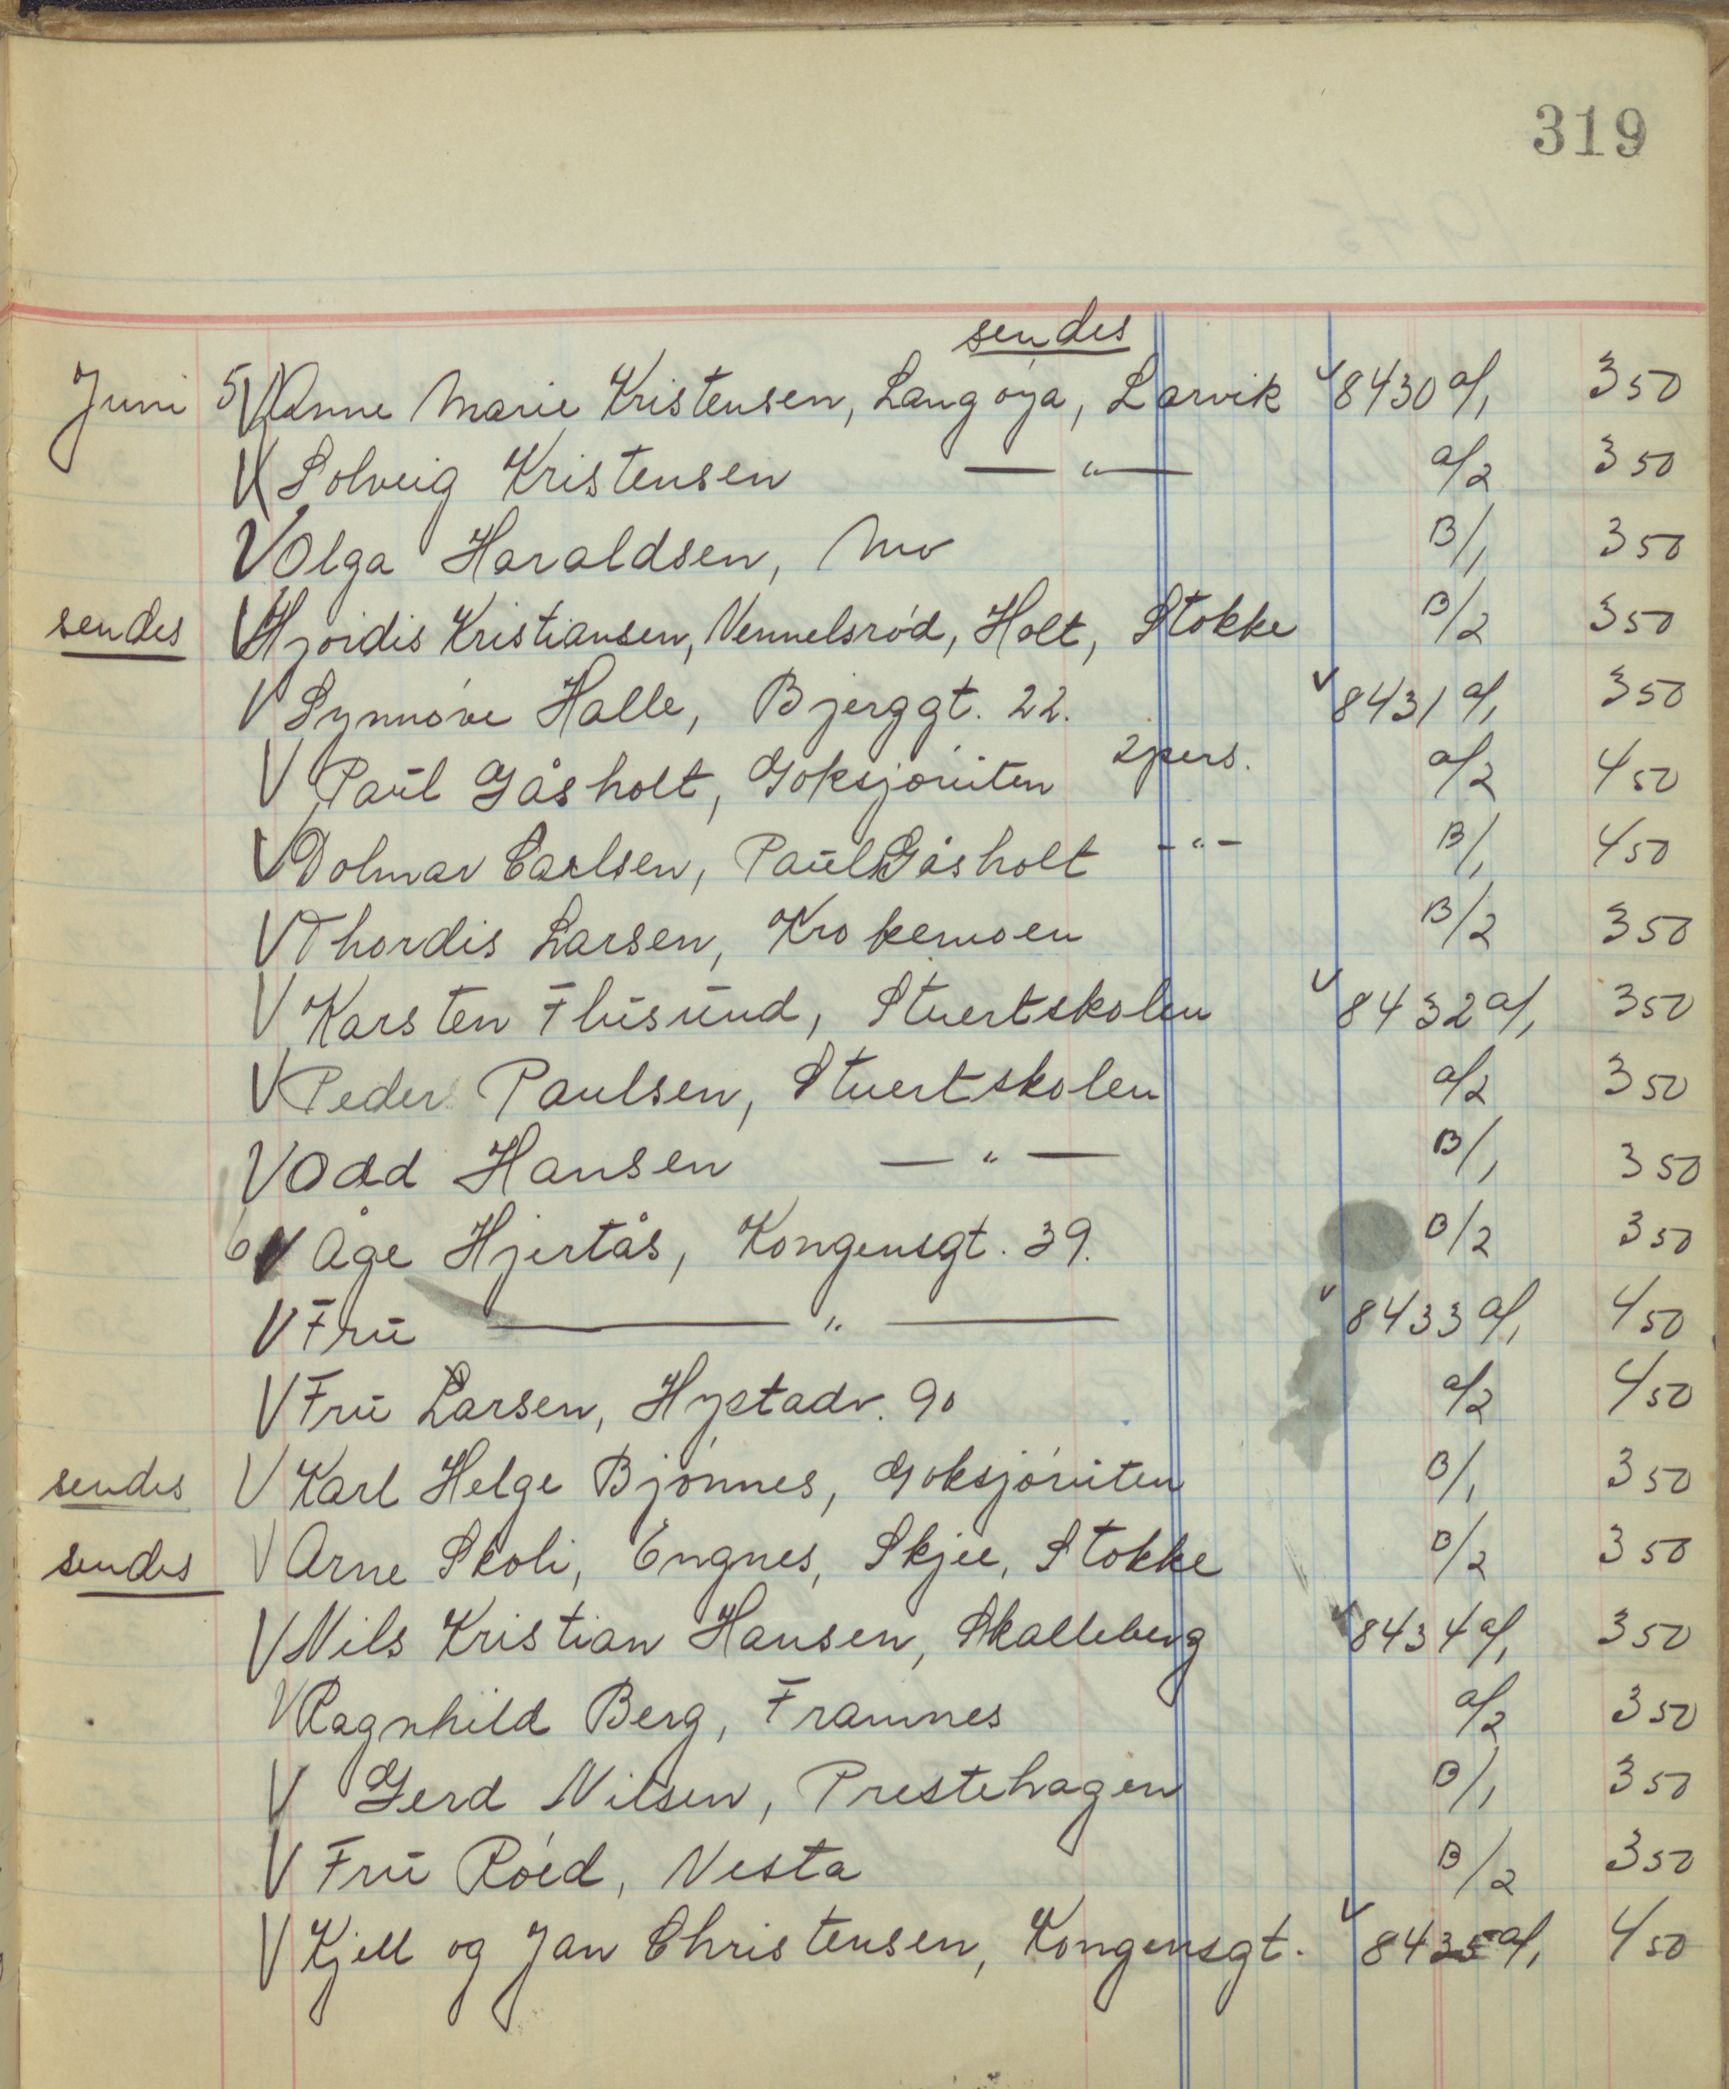 319
sendes
Juni 5 V Anne Marie Kristensen, Langøya, Larvik v 8430 a/1 3 50
V Solveig Kristensen — " — a/2 3 50
V Olga Haraldsen, Mo B/1 3 50
sendes V Hjördis Kristiansen, Vennelsröd, Holt, Stokke B/2 3 50
V Synnöve Halle, Bjerggt. 22. v 8431 a/1 3 50
V Paul Gåsholt, Goksjöruten 2 pers. a/2 4 50
V Dolmar Carlsen, Paul Gåsholt - " - B/1 4 50
V Thordis Larsen, Krokemoen B/2 3 50
V Karsten Flusund, Stuertskolen v 8432 a/1 3 50
V Peder Paulsen, Stuertskolen a/2 3 50
V Odd Hansen — " — B/1 3 50
6 V Åge Hjertås, Kongensgt. 39. B/2 3 50
V Fru — " — v 8433 a/1 4 50
V Fru Larsen, Hystadv. 90 a/2 4 50
sendes V Karl Helge Bjönnes, Goksjöruten B/1 3 50
sendes V Arne Skoli, Engnes, Skjee, Stokke B/2 3 50
V Nils Kristian Hansen, Skalleberg v 8434 a/1 3 50
V Ragnhild Berg, Framnes a/2 3 50
V Gerd Nilsen, Prestehagen B/1 3 50
V Fru Röed, Nesta B/2 3 50
V Kjell og Jan Christensen, Kongensgt. v 8435 a/1 4 50